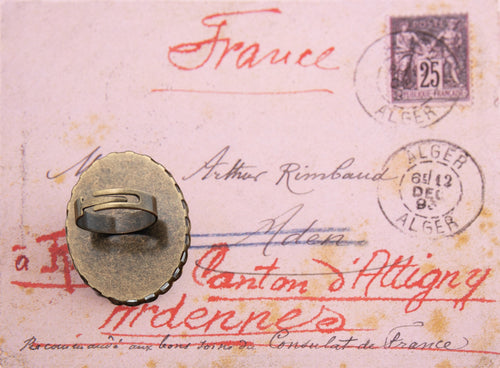 France
POSTE
25
ALGER
M. Arthur Rimbaud
ALGER
6E/12
DEC
93
ALGER
Aden
à Canton d'Attigny
Ardennes
Recommandé aux bons soins du Consulat de France